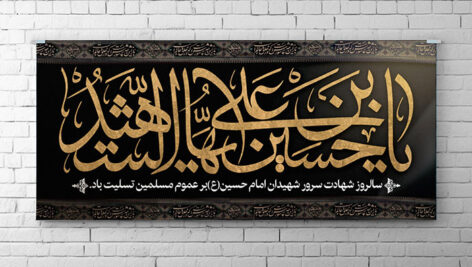 یا حسین بن علی ایها الشهید
سالروز شهادت سرور شهیدان امام حسین(ع)بر عموم مسلمین تسلیت باد.